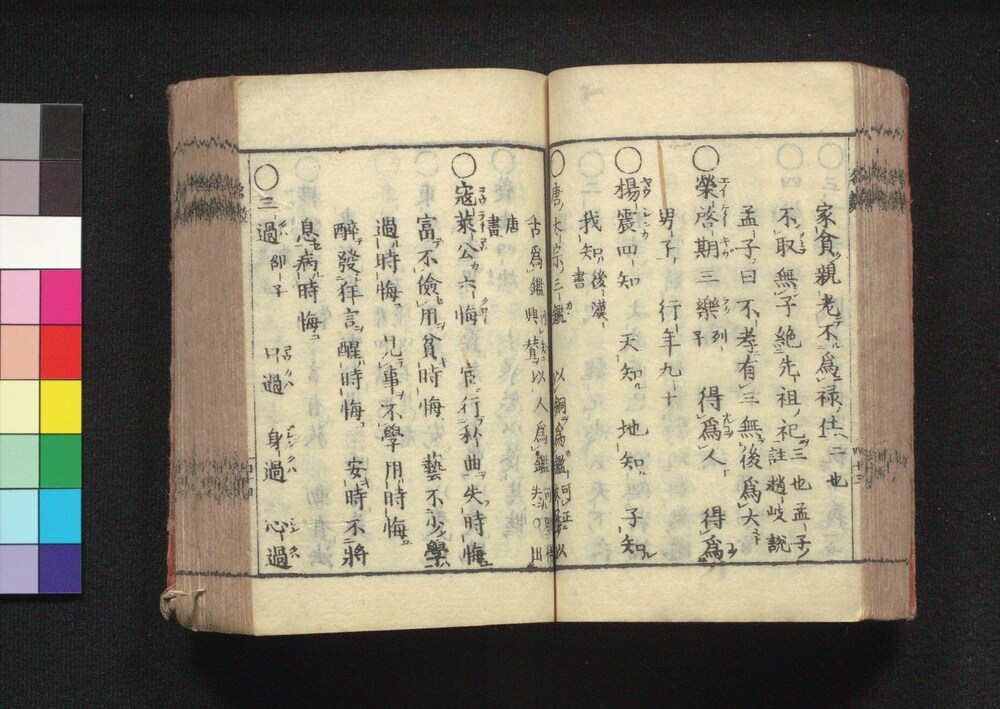 家貧親老不爲禄仕二也
不取無子絶先祖祀三也孟子註趙岐説
孟子曰不孝有三無後爲大
○榮啓期三樂列子 得爲人 得爲
男子 行年九十
○楊震四知 天知 地知 子知
我知後漢書
○唐太宗三鑑 以銅爲鑑可正 以
古爲鑑 以人爲鑑 出
唐書
○寇萊公六悔 官行私曲失時悔
富不儉用貧時悔 藝不少學
過時悔 見事不學用時悔
醉發狂言醒時悔 安時不將
息病時悔
○三過邵子 口過 身過 心過